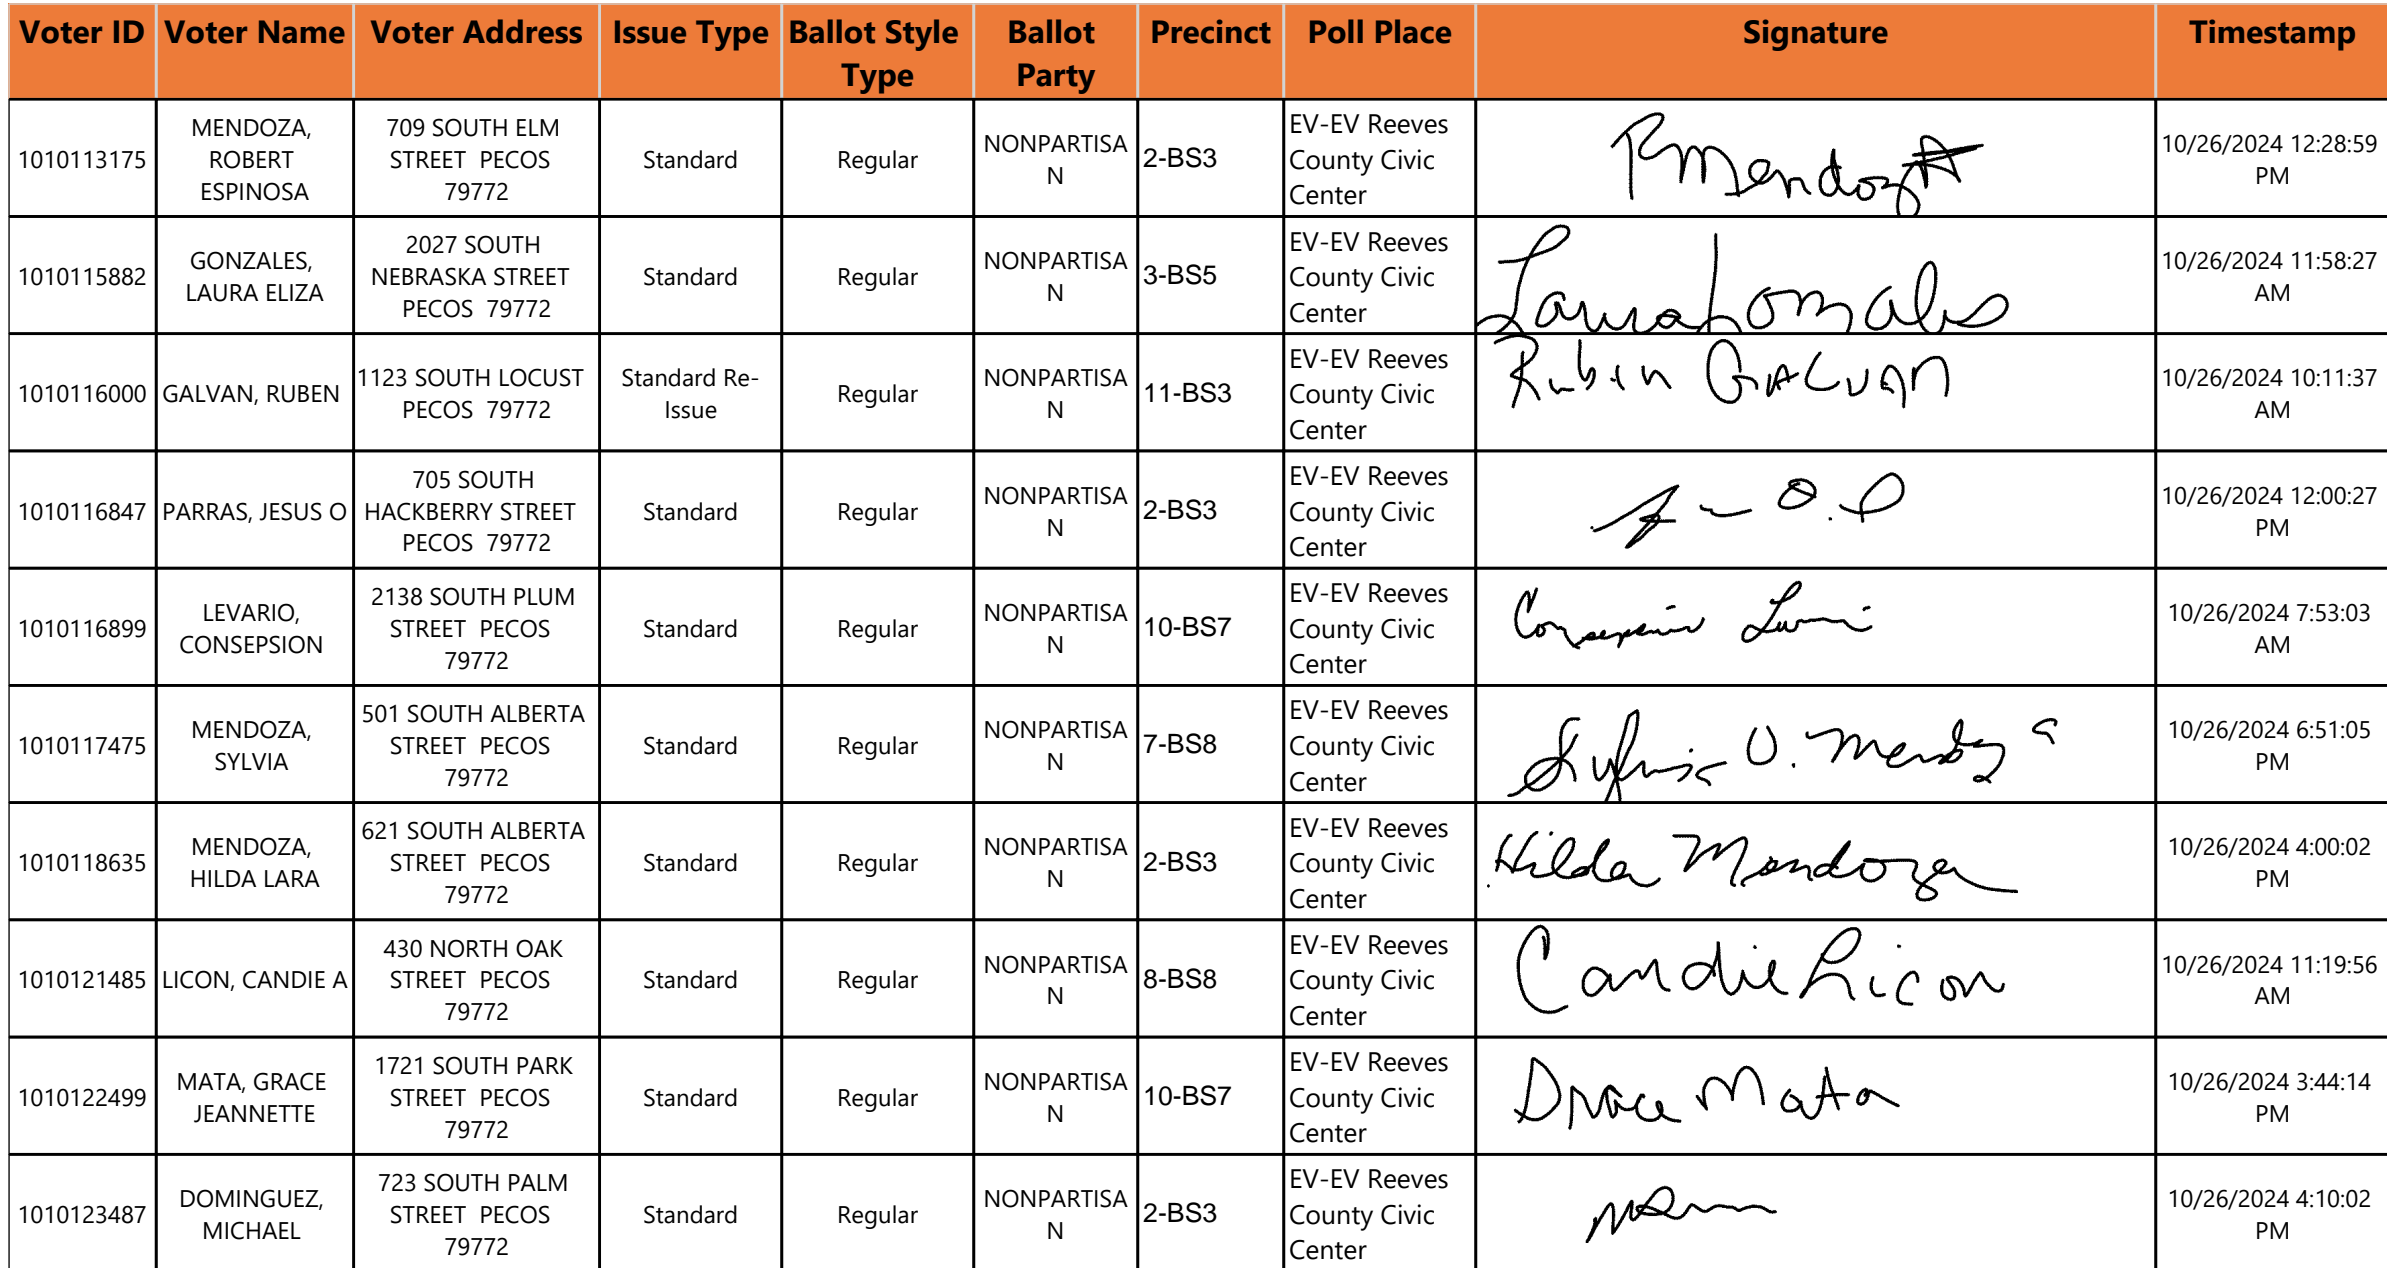 Voter ID Voter Name Voter Address Issue Type Ballot Style Type Ballot Party Precinct Poll Place Signature Timestamp
1010113175 MENDOZA, ROBERT ESPINOSA 709 SOUTH ELM STREET PECOS 79772 Standard Regular NONPARTISAN 2-BS3 EV-EV Reeves County Civic Center RMendoza 10/26/2024 12:28:59 PM
1010115882 GONZALES, LAURA ELIZA 2027 SOUTH NEBRASKA STREET PECOS 79772 Standard Regular NONPARTISAN 3-BS5 EV-EV Reeves County Civic Center Laura Gonzales 10/26/2024 11:58:27 AM
1010116000 GALVAN, RUBEN 1123 SOUTH LOCUST PECOS 79772 Standard Re-Issue Regular NONPARTISAN 11-BS3 EV-EV Reeves County Civic Center Ruben GALVAN 10/26/2024 10:11:37 AM
1010116847 PARRAS, JESUS O 705 SOUTH HACKBERRY STREET PECOS 79772 Standard Regular NONPARTISAN 2-BS3 EV-EV Reeves County Civic Center 10/26/2024 12:00:27 PM
1010116899 LEVARIO, CONSEPSION 2138 SOUTH PLUM STREET PECOS 79772 Standard Regular NONPARTISAN 10-BS7 EV-EV Reeves County Civic Center Consepsion 10/26/2024 7:53:03 AM
1010117475 MENDOZA, SYLVIA 501 SOUTH ALBERTA STREET PECOS 79772 Standard Regular NONPARTISAN 7-BS8 EV-EV Reeves County Civic Center Sylvia O. Mendoza 10/26/2024 6:51:05 PM
1010118635 MENDOZA, HILDA LARA 621 SOUTH ALBERTA STREET PECOS 79772 Standard Regular NONPARTISAN 2-BS3 EV-EV Reeves County Civic Center Hilda Mendoza 10/26/2024 4:00:02 PM
1010121485 LICON, CANDIE A 430 NORTH OAK STREET PECOS 79772 Standard Regular NONPARTISAN 8-BS8 EV-EV Reeves County Civic Center Candie Licon 10/26/2024 11:19:56 AM
1010122499 MATA, GRACE JEANNETTE 1721 SOUTH PARK STREET PECOS 79772 Standard Regular NONPARTISAN 10-BS7 EV-EV Reeves County Civic Center Grace Mata 10/26/2024 3:44:14 PM
1010123487 DOMINGUEZ, MICHAEL 723 SOUTH PALM STREET PECOS 79772 Standard Regular NONPARTISAN 2-BS3 EV-EV Reeves County Civic Center 10/26/2024 4:10:02 PM